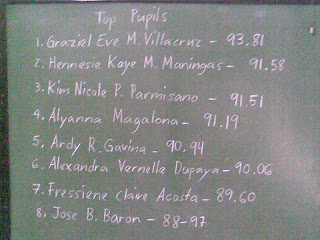 Top Pupils
1. Graziel Eve M. Villacruz - 93.81
2. Hennesie Kaye M. Maningas - 91.58
3. Kim Nicole P. Parmisano - 91.51
4. Alyanna Magalona - 91.19
5. Ardy R. Gavina - 90.94
6. Alexandra Vernelle Dupaya - 90.06
7. Fressiene Claire Acosta - 89.60
8. Jose B. Baron - 88-97